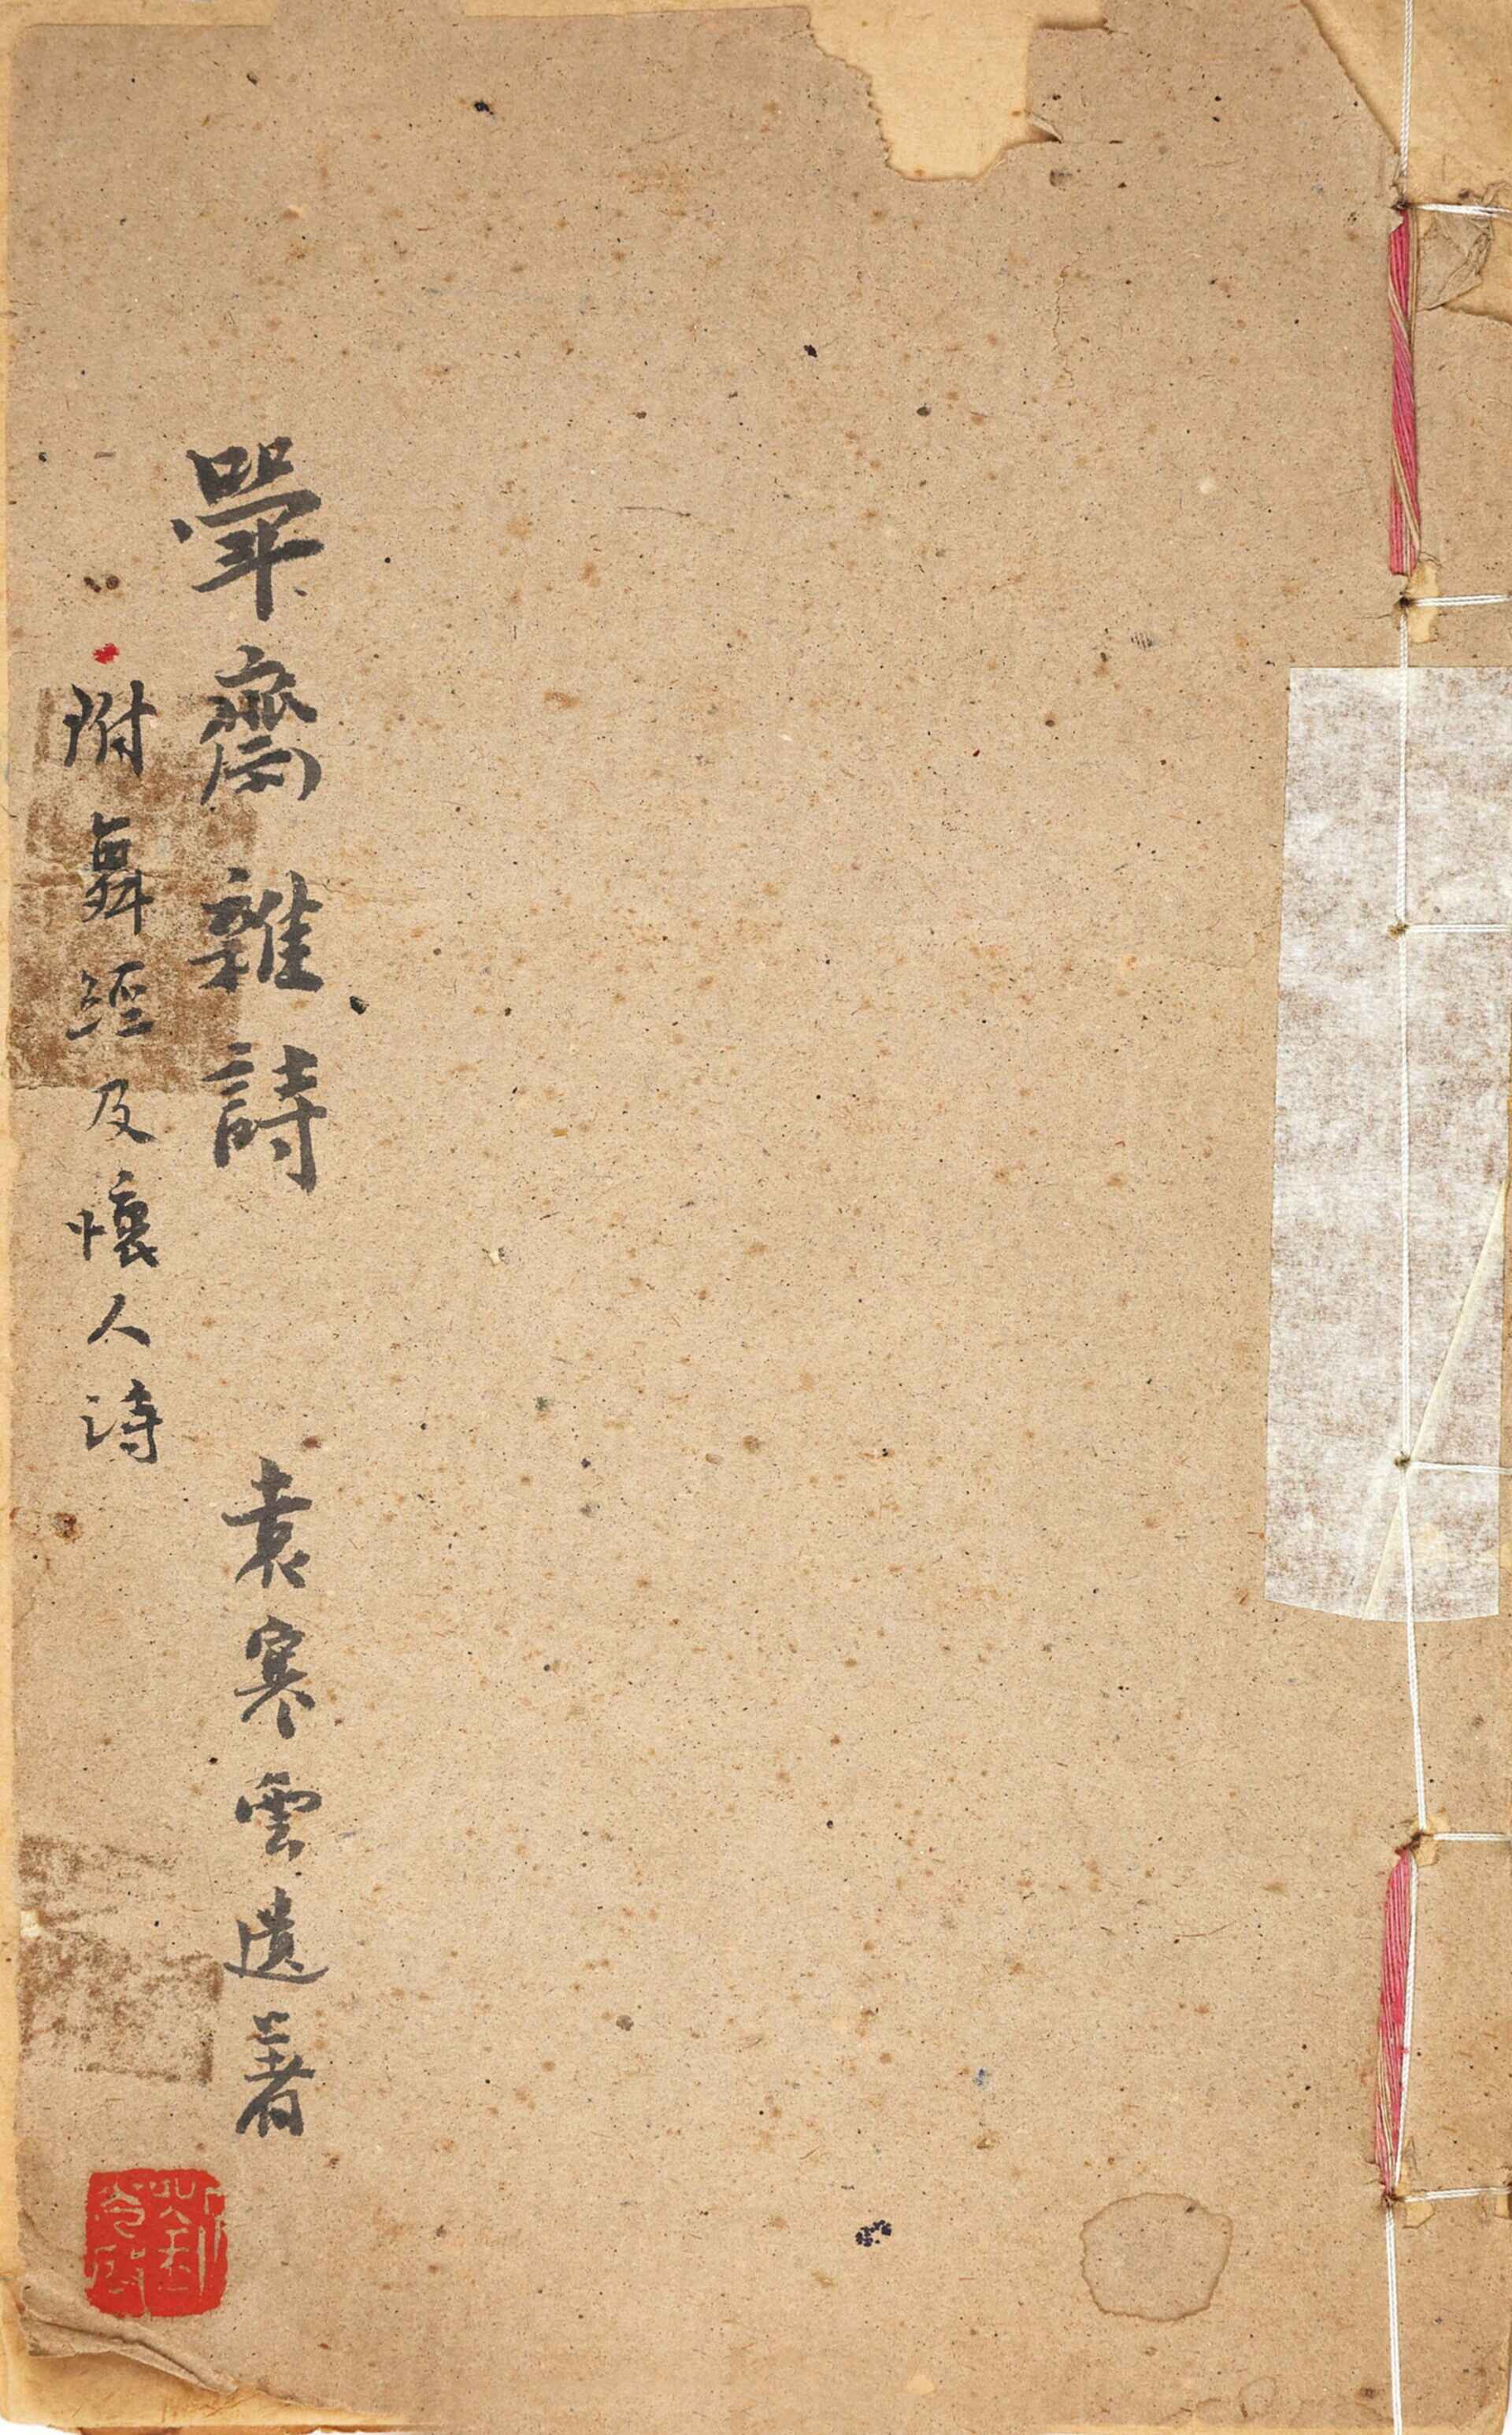 斝齋雜詩　袁寒雲遺著
附舞經及懷人詩